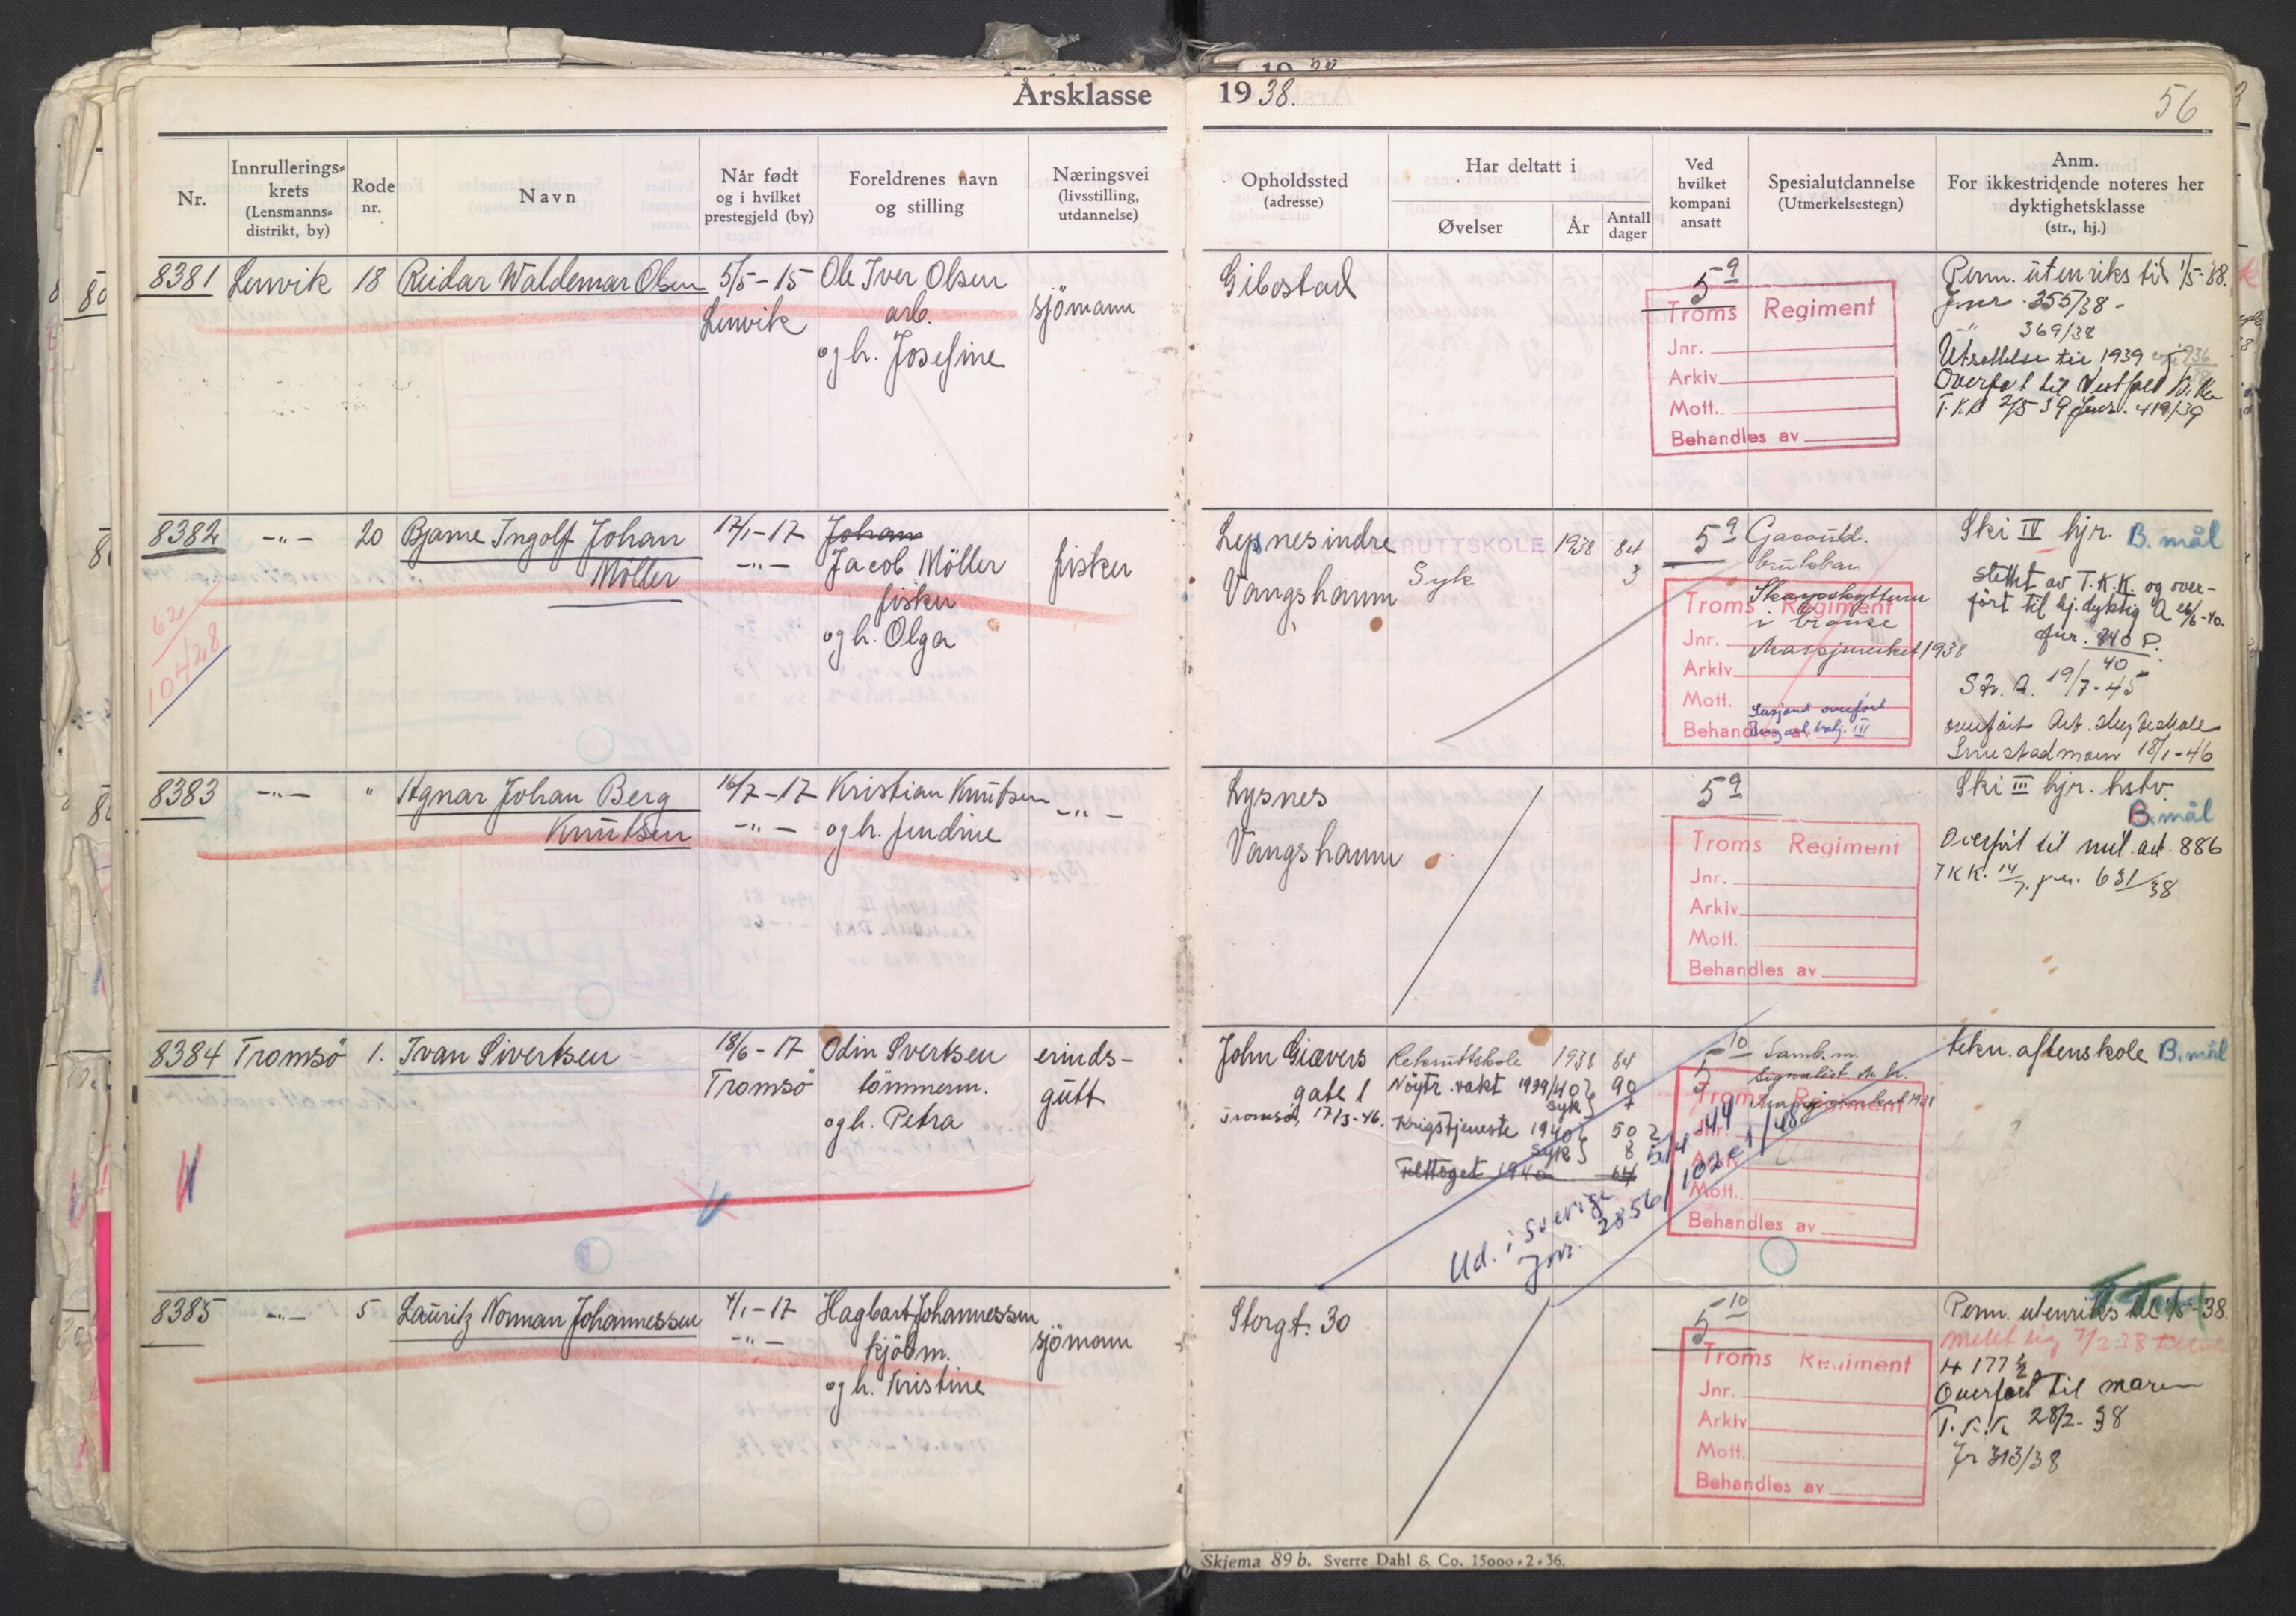 Årsklasse 1938.
56
Nr.
Innrullerings-
krets
(Lensmanns-
distrikt, by)
Rode
nr.
Navn
Når født
og i hvilket
prestegjeld (by)
Foreldrenes navn
og stilling
Næringsvei
(livsstilling,
utdannelse)
Opholdssted
(adresse)
Har deltatt i
Øvelser
År
Antall
dager
Ved
hvilket
kompani
ansatt
Spesialutdannelse
(Utmerkelsestegn)
Anm.
For ikkestridende noteres her
dyktighetsklasse
(str., hj.)
8381 Lenvik 18 Reidar Waldemar Olsen 5/5-15 Ole Iver Olsen
Lenvik arb. sjömann
og h. Josefine
Gibostad
5 9
Troms Regiment
Jnr.
Arkiv
Mott.
Behandles av
Perm. utenriks til 1/5-38.
Jnr. 355/38-
-"- 369/38
Utsettelse til 1939
Overført til Vestfold
T.K.K 2/5 39 Jnr. 419/39
8382 -"- 20 Bjarne Ingolf Johan 17/1-17 Johan
Möller -"- Jacob Möller fisker
fisker
og h. Olga
62
10428
Lysnes indre
Vangshamn
REKRUTTSKOLE 1938 84
Syk 3
5 9
Gassutd.
brukbar.
Skarpskytter
i bronse
Marsjmerket 1938
Troms Regiment
Jnr.
Arkiv
Mott.
Behandles av
Sersjant overført
Ski IV hjr. B. mål
slettet av T.K.K. og over-
ført til hj.dyktig A 26/6-40.
Jnr. 840 P.
40
Str. A. 19/7-45
overført
18/1-46
8383 -"- " Agnar Johan Berg 16/7-17 Kristian Knutsen -"-
Knutsen -"- og h. Jendine
Lysnes
Vangshamn
5 9
Troms Regiment
Jnr.
Arkiv
Mott.
Behandles av
Ski III hjr. hstv.
B. mål
Overført til mil. avd. 886
TKK. 14/7. jnr. 631/38
8384 Tromsö 1. Ivan Sivertsen 18/6-17 Odin Sivertsen erinds-
Tromsö tömmerm. gutt
og h. Petra
John Giævers
gate 1
Tromsö, 17/3-46.
Rekruttskole 1938 84
Nøytr. vakt 1939/40 90
syk 7
Krigstjeneste 1940 50
syk 8
Felttoget 1940 64
Ud. i Sverige 5/4 44
Jnr. 2856/102 e 1/48
5 10
Samb.m.
Signalist
Marsjmerket 1938
Troms Regiment
Jnr.
Arkiv
Mott.
Behandles av
tekn. aftenskole B. mål
8385 -"- 5 Lauritz Norman Johannessen 4/1-17 Hagbart Johannessen
-"- kjöbm. sjömann
og h. Kristine
Storgt. 30
5 10
Troms Regiment
Jnr.
Arkiv
Mott.
Behandles av
Perm. utenriks til 1/5-38.
Meldt sig 7/2-38
H 177
Overført til marinen
T.K.K 28/2-38
Jr 313/38
Skjema 89 b. Sverre Dahl & Co. 15000-2-36.